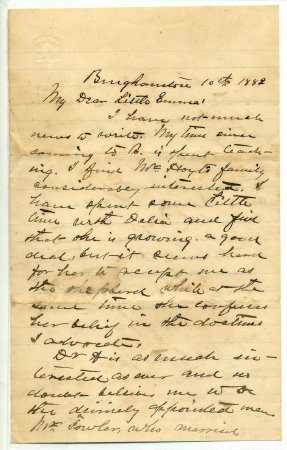 Binghamton 10th 1882
My Dear Little Emma:
I have not much
news to write. My time since
coming to B. is spent teach-
ing. I find Mr. Hoyts family
considerably interested. I
have spent some little
time with Delia and find
that she is growing a good
deal but it seems hard
for her to accept me as
the shepherd while at the
same time she confesses
her belief in the doctrines
I advocate.
Dr H is as much in-
terested as ever and no
doubt believes me to be
the divinely appointed man
Mr. Fowler, who married